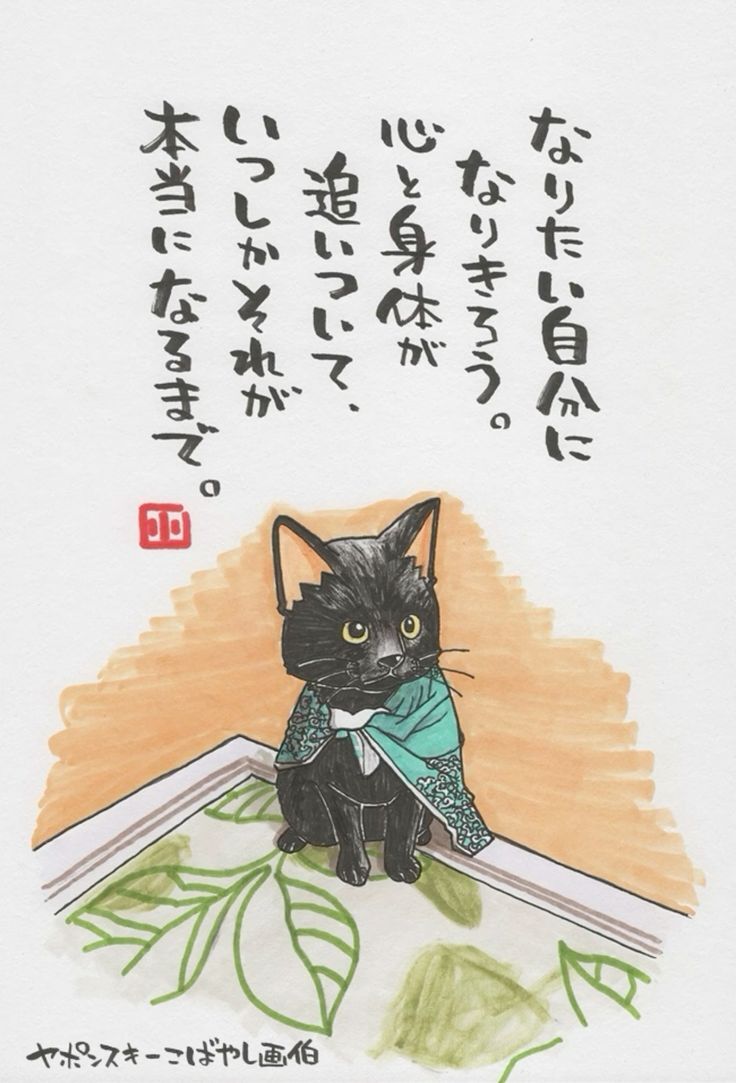 なりたい自分に
なりきろう。
心と身体が
追いついて、
いつしかそれが
本当になるまで。
ヤポンスキーこばやし画伯